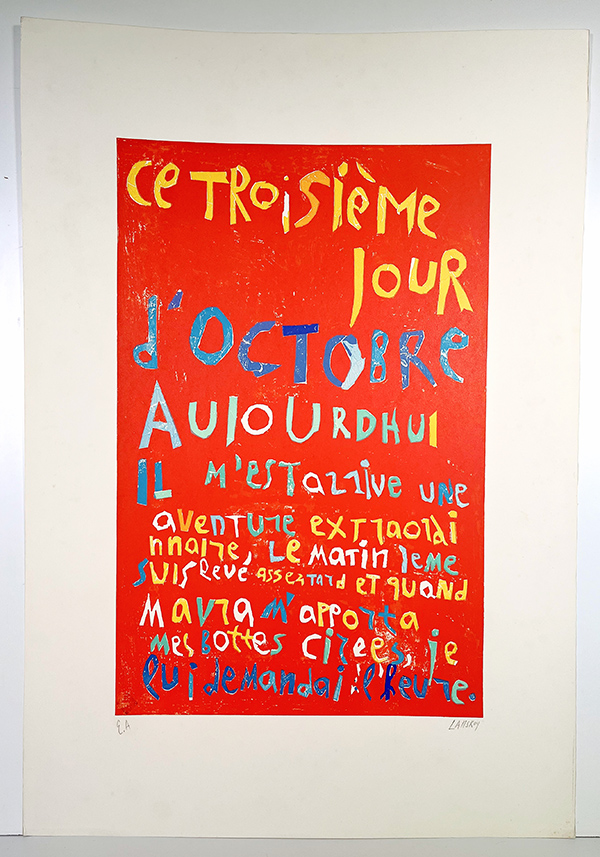 Ce TROiSièMe
JOUR
d'OCTOBRe
AUJOURDHUI
IL M'esTarrive une
aventure extraordi
nnaire, Le matin jeme
suis levé assez tard et quand
Mavra m'apporta
mes bottes cirées, je
lui demandai l'heure.
E.A